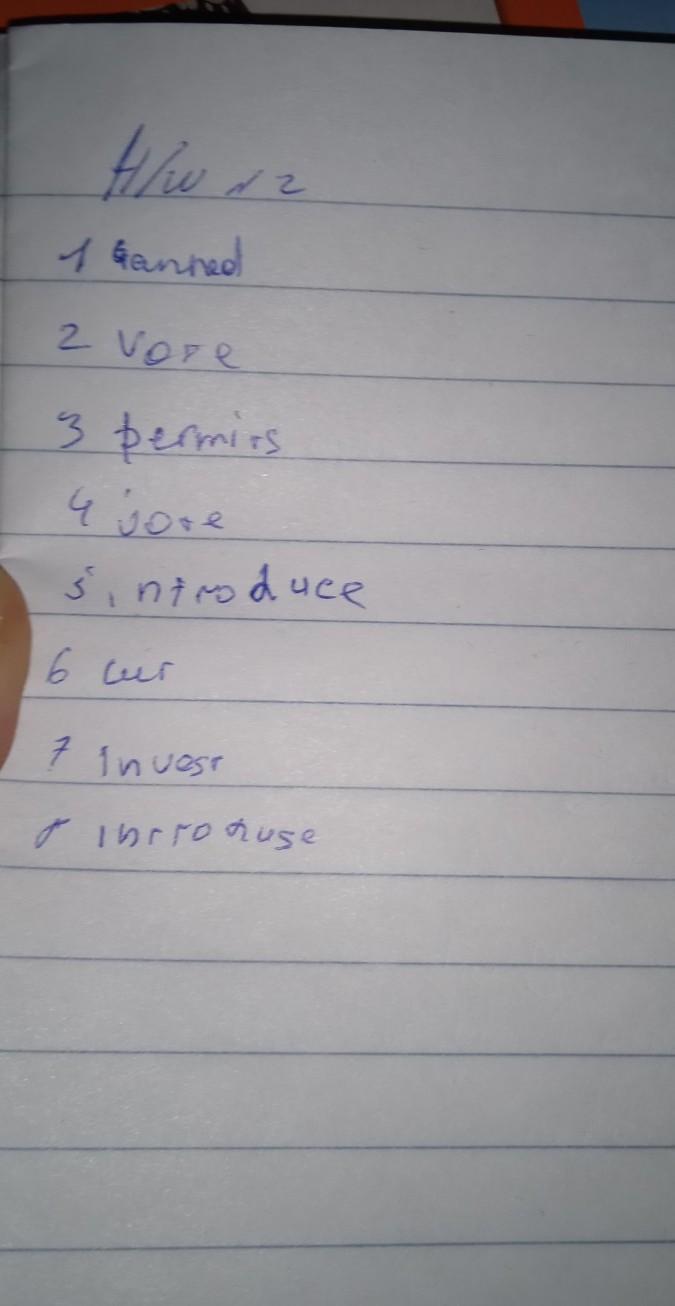 H/w N 2
1 banned
2 vote
3 permits
4 vote
5 introduce
6 cut
7 invest
8 introduse